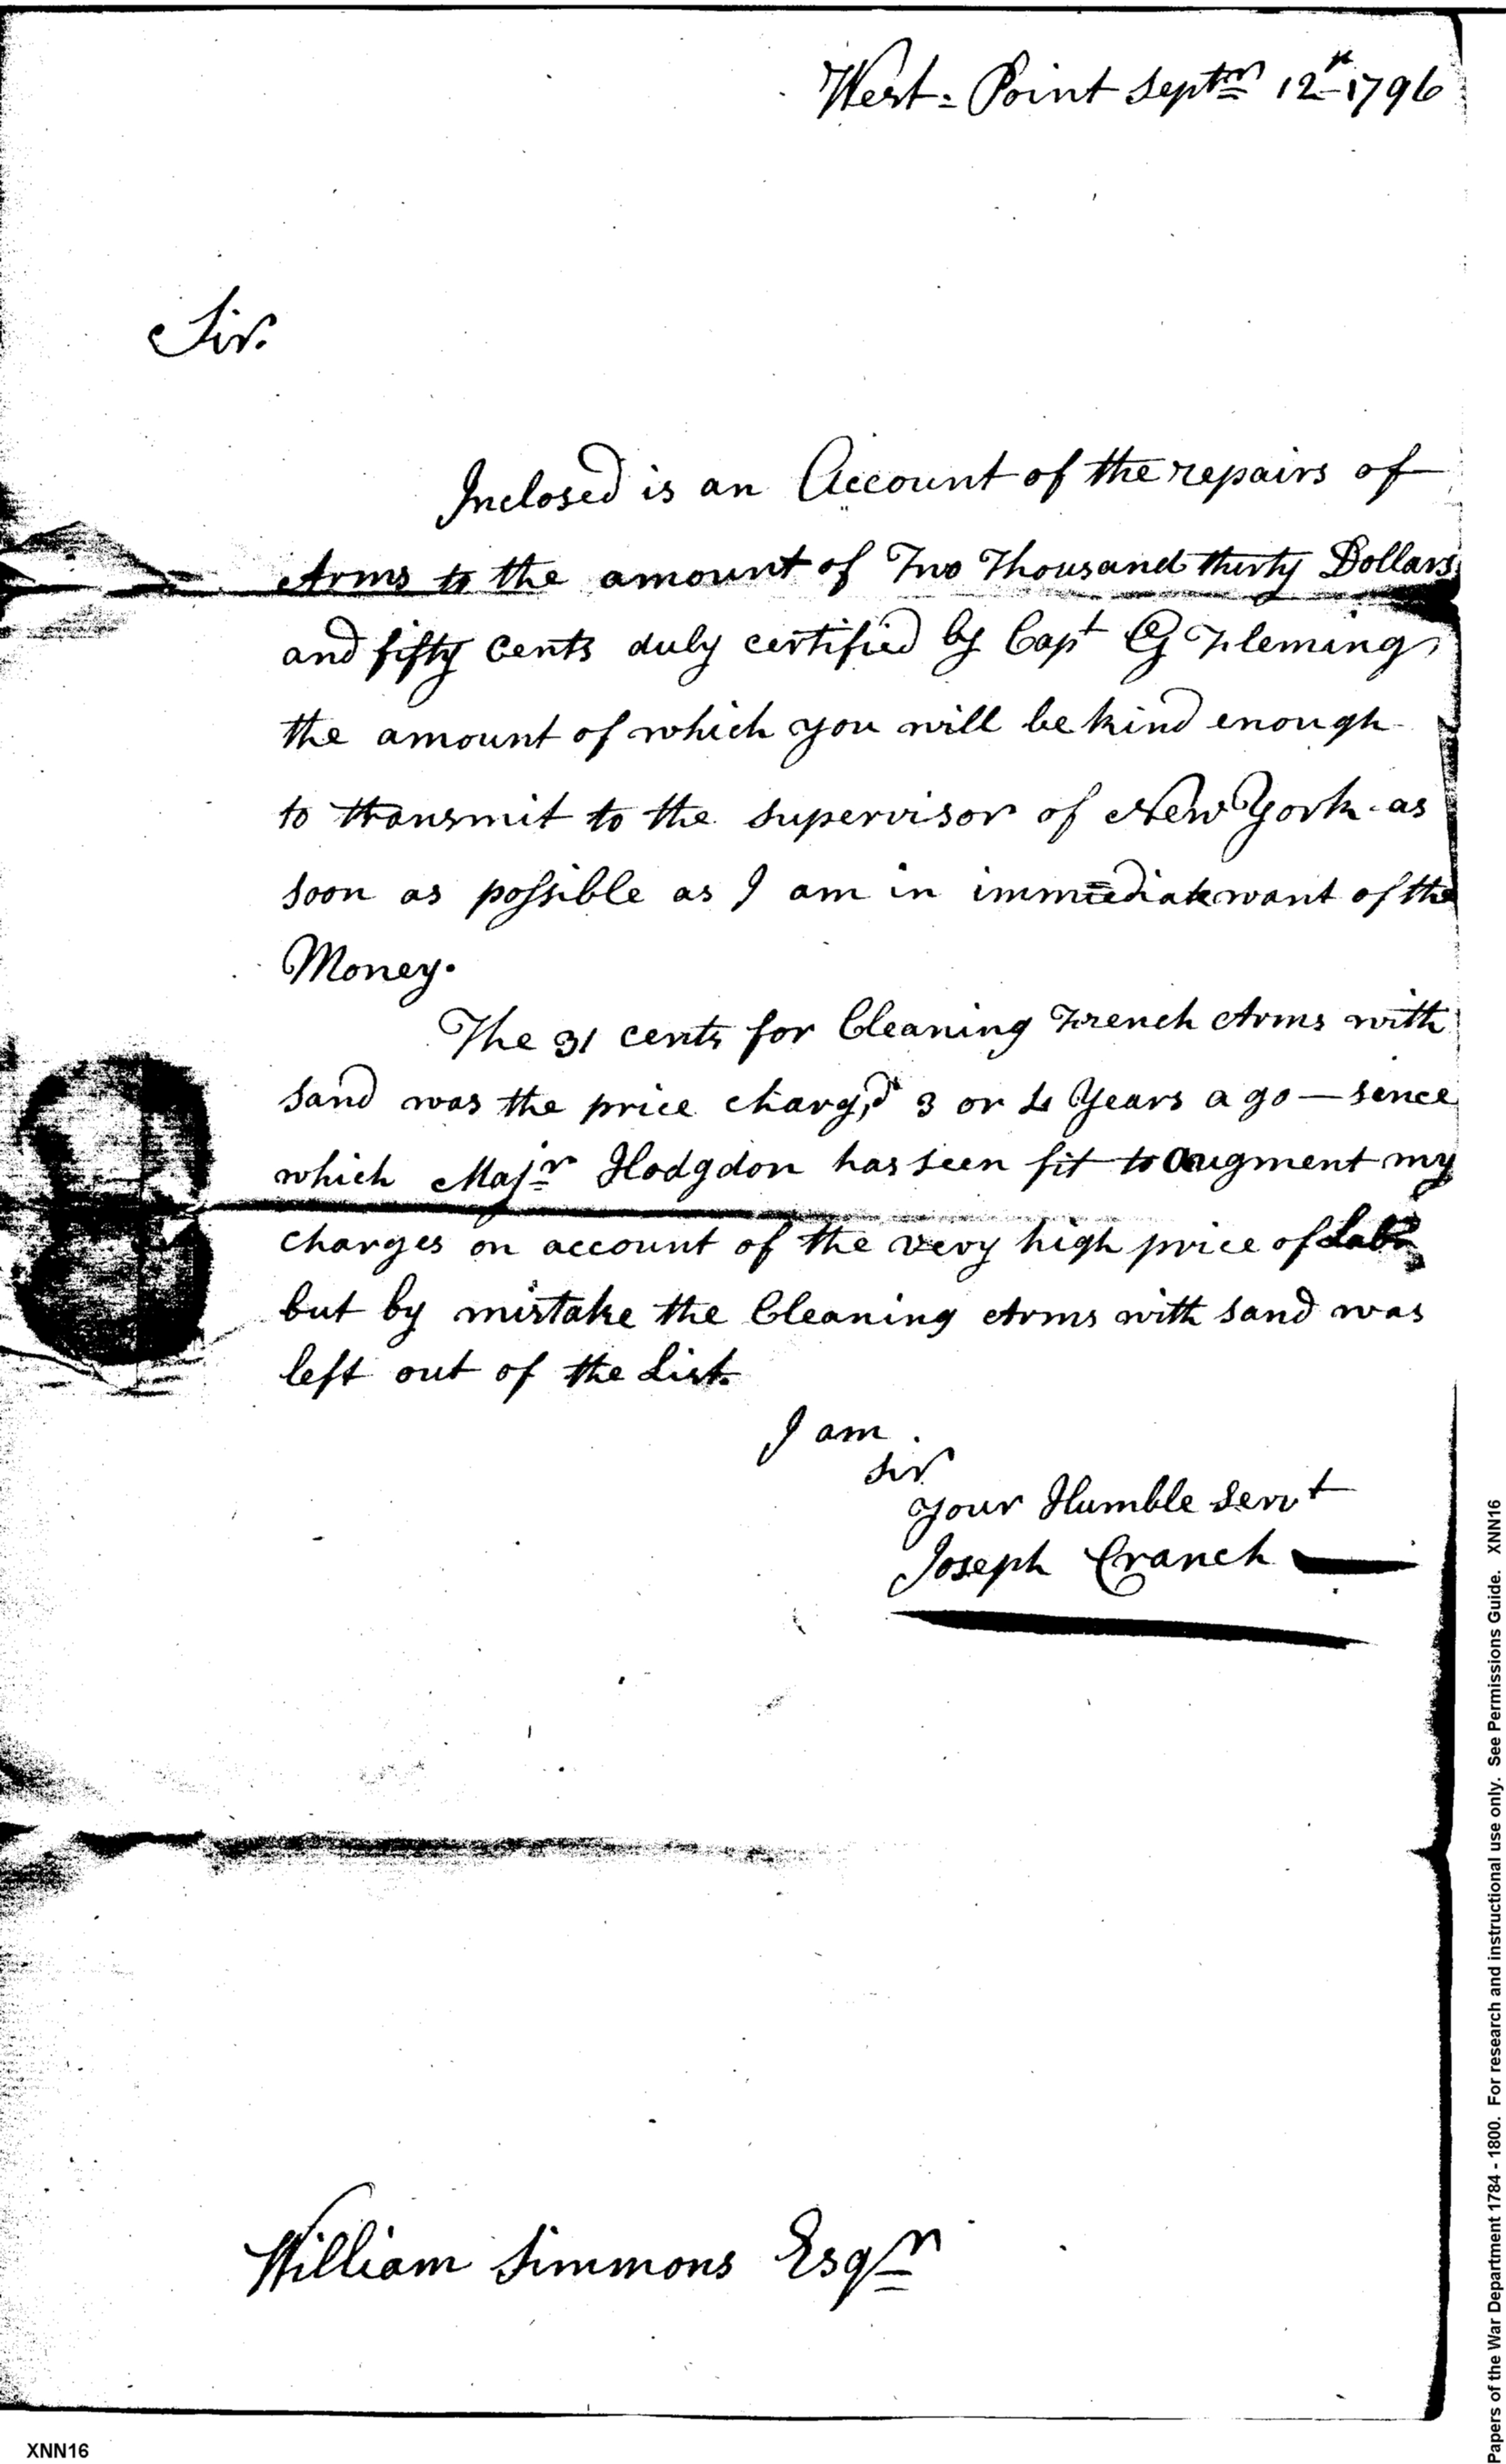 West=Point Septmr 12th 1796
Sir.
Inclosed is an Account of the repairs of
Arms to the amount of Two Thousand thirty Dollars
and fifty Cents duly certified by Capt G Fleming,
the amount of which you will be kind enough
to transmit to the supervisor of New York as
soon as possible as I am in immediate want of the
Money.
The 31 cents for Cleaning French Arms with
sand was the price charg,d 3 or 4 Years ago — sence
which Majr Hodgdon has seen fit to augment my
charges on account of the very high price of
but by mistake the Cleaning Arms with sand was
left out of the List.
I am
Sir
your Humble Servt
Joseph Cranch
William Simmons Esqr
XNN16
Papers of the War Department 1784 - 1800. For research and instructional use only. See Permissions Guide. XNN16